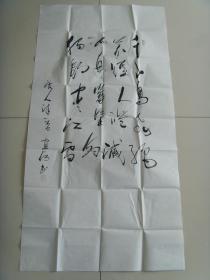 千山鸟飞绝
万径人踪灭
孤舟蓑笠翁
独钓寒江雪
唐人诗
书